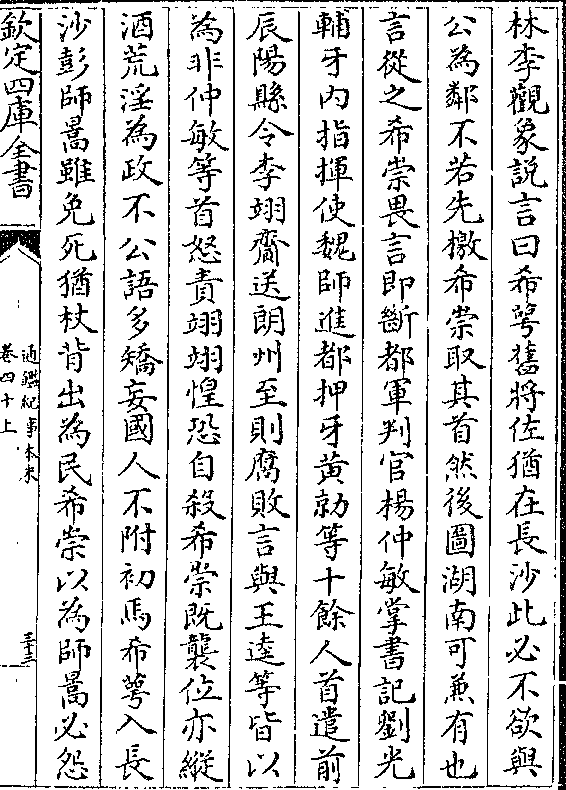 林李觀象説言曰希萼舊將佐猶在長沙此必不欲與
公為鄰不若先檄希崇取其首然後圖湖南可兼有也
言從之希崇畏言即斷都軍判官楊仲敏掌書記劉光
輔牙内指揮使魏師進都押牙黄勍等十餘人首遣前
辰陽縣令李翊齎送朗州至則腐敗言與王逵等皆以
為非仲敏等首怒責翊翊惶恐自殺希崇既襲位亦縱
酒荒淫為政不公語多矯妄國人不附初馬希萼入長
沙彭師暠雖免死猶杖背出為民希崇以為師暠必怨
欽定四庫全書
通鑑紀事本末
卷四十上
三十三